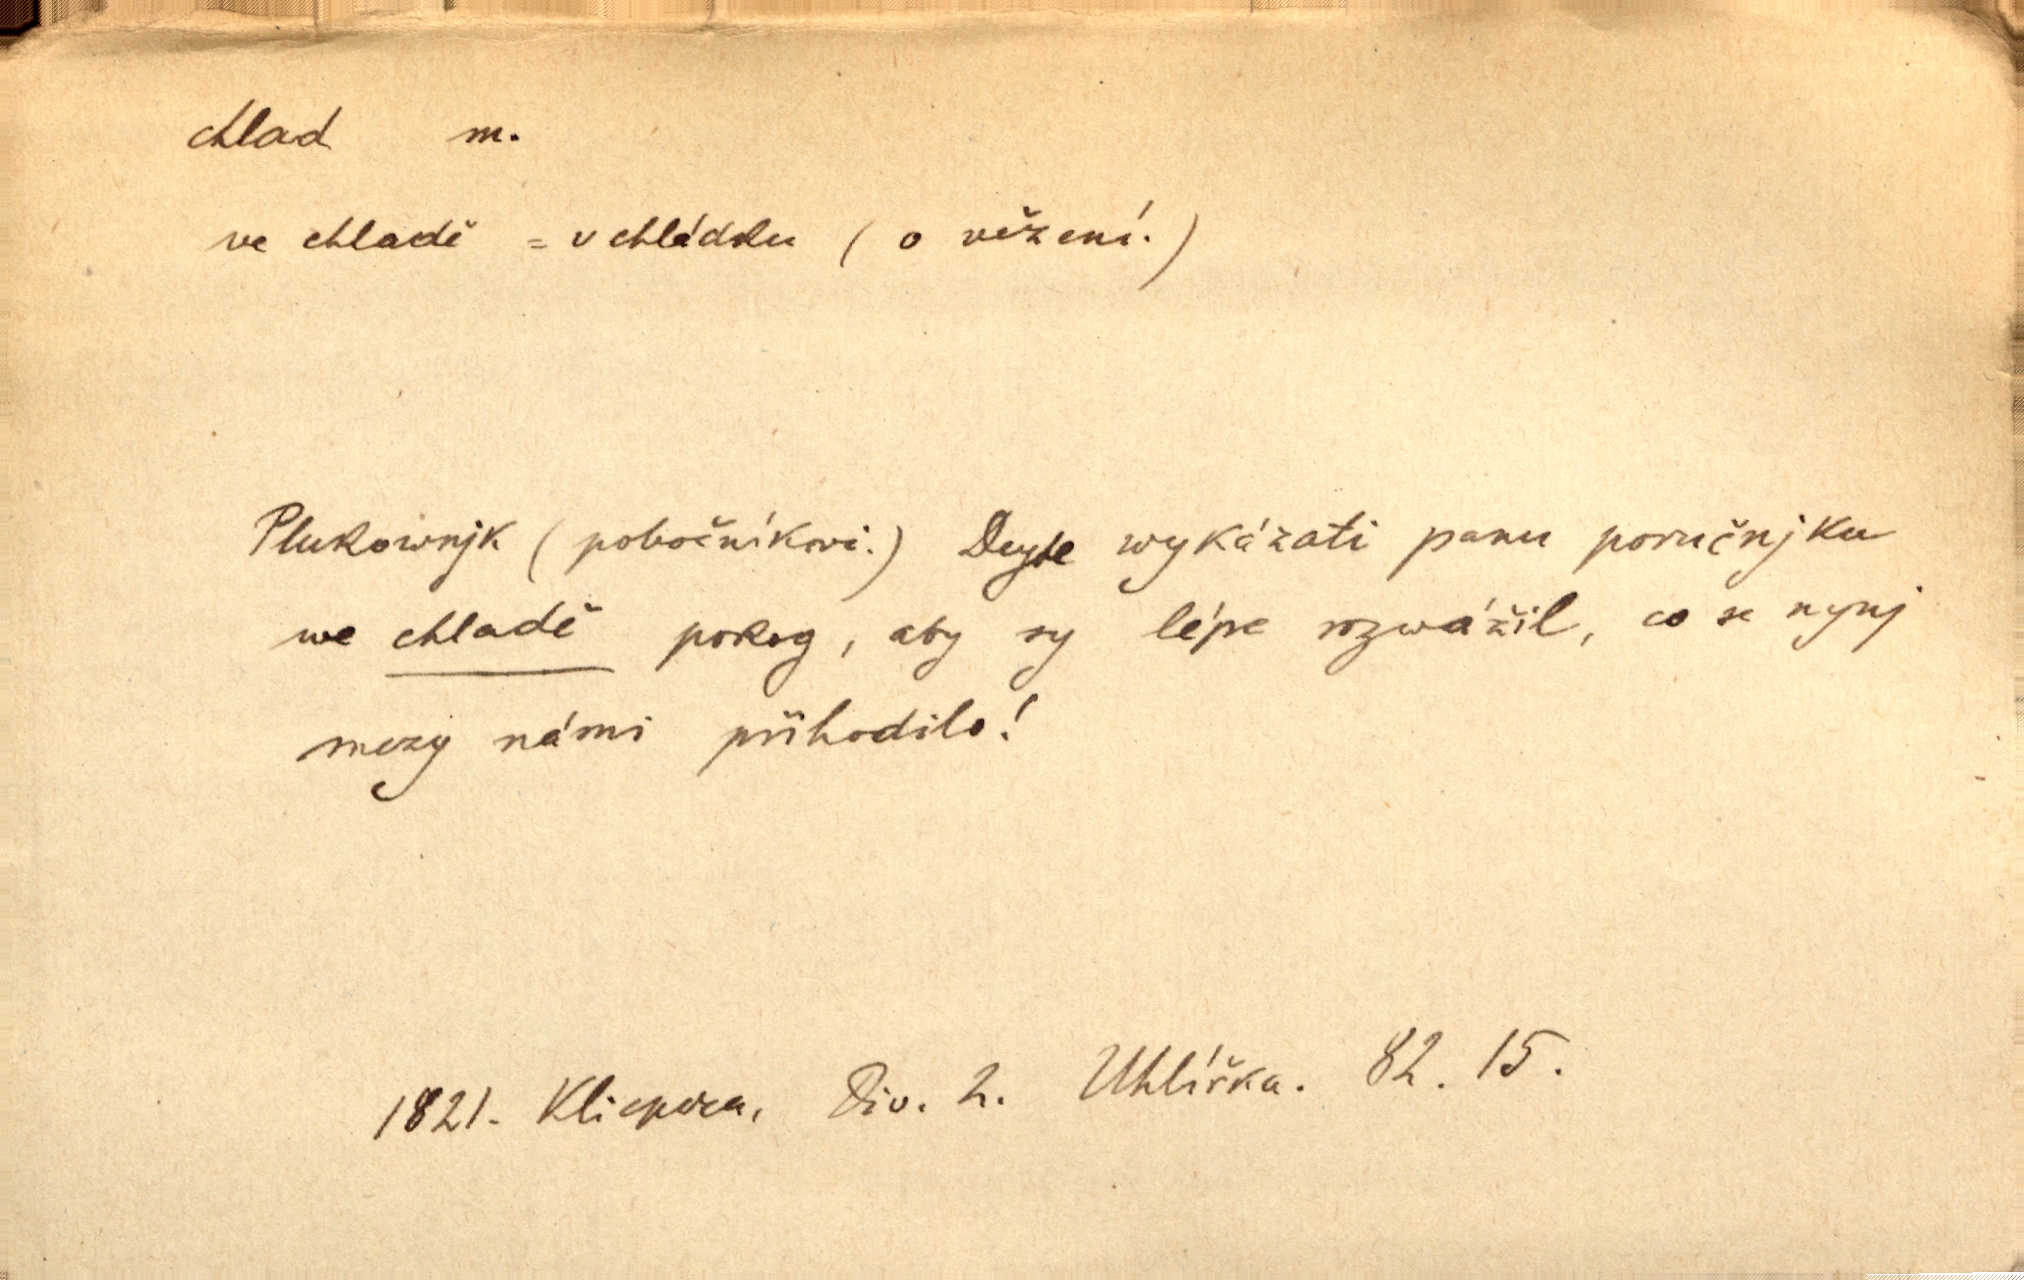 chlad m.
ve chladě = v chládku ( o vězení.)
Plukownjk ( pobočníkovi.) Deyte wykázati panu poručnjku
we chladě pokog, aby sy lépe rozwážil, co se nynj
mezy námi přihodilo!
1821. Klicpera. Div. 2. Uhlířka. 82. 15.